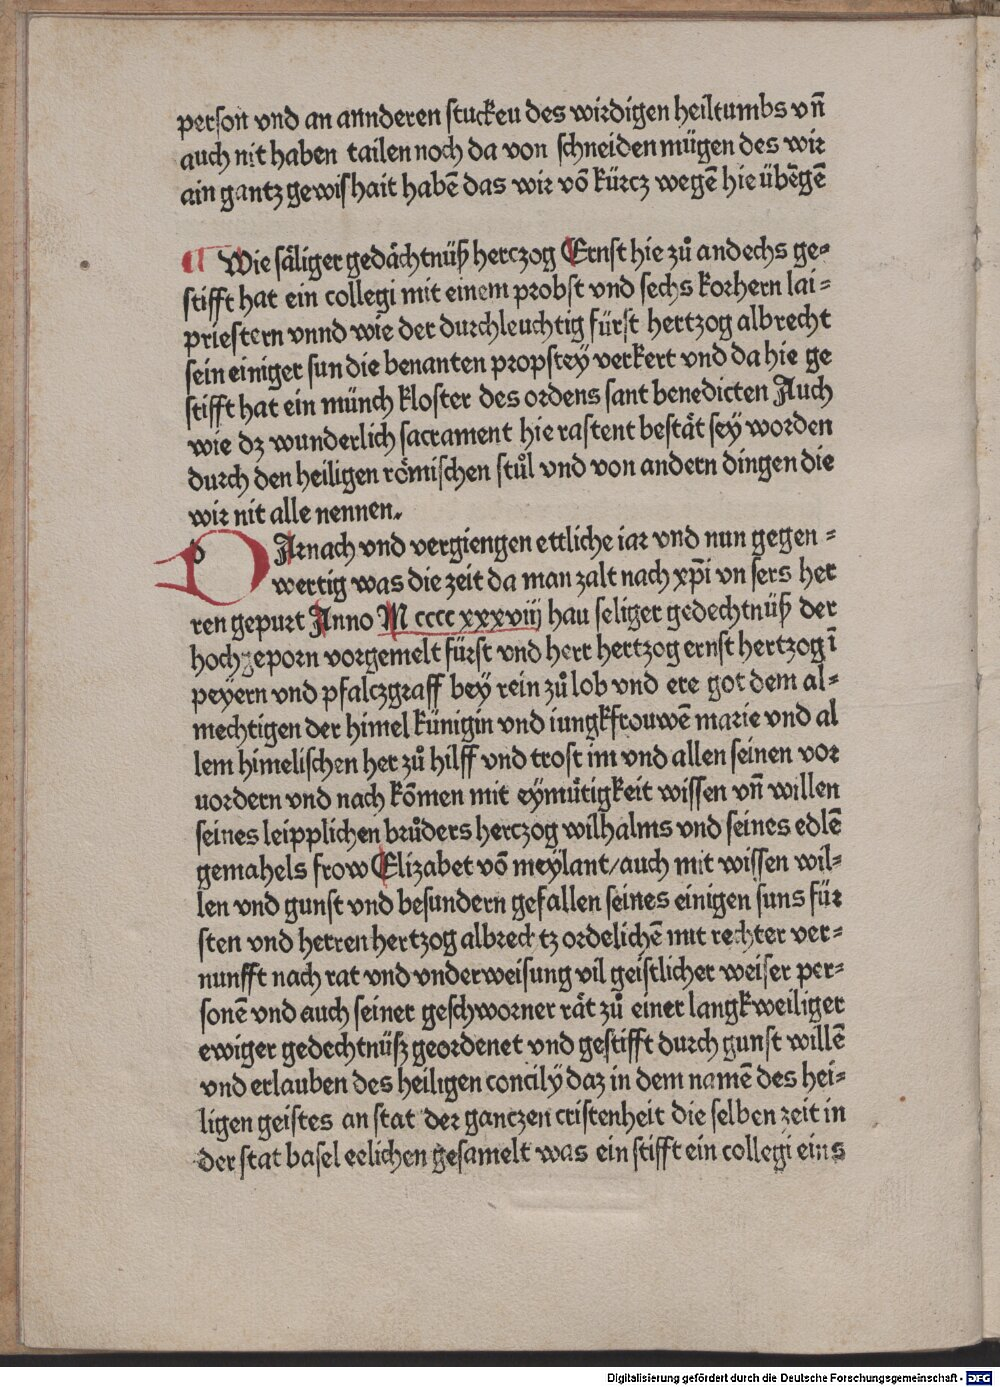 person vnd an annderen stucken des wirdigen heiltumbs vn̄
auch nit haben tailen noch da von schneiden mügen des wir
ain gantz gewishait habē das wir vō kürcz wegē hie übēgē
¶ Wie säliger gedächtnüß herczog Ernst hie zů andechs ge=
stifft hat ein collegi mit einem probst vnd sechs korhern lai=
priestern vnnd wie der durchleuchtig fürst hertzog albrecht
sein einiger sun die benanten propstey verkert vnd da hie ge
stifft hat ein münch kloster des ordens sant benedicten Auch
wie dz wunderlich sacrament hie rastent bestät sey worden
durch den heiligen römischen stůl vnd von andern dingen die
wir nit alle nennen.
DArnach vnd vergiengen ettliche iar vnd nun gegen=
wertig was die zeit da man zalt nach xp̄i vn sers her
ren gepurt Anno M cccc xxxviij hau seliger gedechtnüß der
hochgeporn vorgemelt fürst vnd herr hertzog ernst hertzog ī
peyern vnd pfalczgraff bey rein zů lob vnd ere got dem al=
mechtigen der himel künigin vnd iungkfrouwē marie vnd al
lem himelischen her zů hilff vnd trost im vnd allen seinen vor
uordern vnd nach kōmen mit eymütigkeit wissen vn̄ willen
seines leipplichen brůders herczog wilhalms vnd seines edlē
gemahels frow Elizabet vō meylant/auch mit wissen wil=
len vnd gunst vnd besundern gefallen seines einigen suns für
sten vnd herren hertzog albrechtz ordelichē mit rechter ver=
nunfft nach rat vnd vnderweisung vil geistlicher weiser per=
sonē vnd auch seiner geschworner rät zů einer langkweiliger
ewiger gedechtnüß geordenet vnd gestifft durch gunst willē
vnd erlauben des heiligen concily daz in dem namē des hei=
ligen geistes an stat der ganczen cristenheit die selben zeit in
der stat basel eelichen gesamelt was ein stifft ein collegi eins
Digitalisierung gefördert durch die Deutsche Forschungsgemeinschaft - DFG